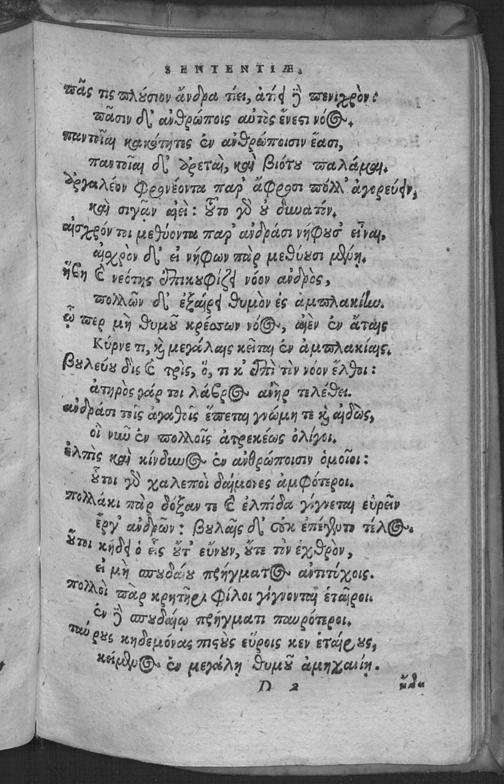 SENTENTIÆ.
πᾶς τις πλύσιον ἄνδρα τίει, ἀτίει δὲ πενιχρόν:
πᾶσιν δ' ἀνθρώποις αὐτὸς ἔνεστι νόος.
παντοῖαι κακότητες ἐν ἀνθρώποισιν ἔασι,
παντοῖαι δ' ἀρεταὶ, καὶ βιότου παλάμαι.
ἀργαλέον φρονέοντα παρ' ἄφροσι πόλλ' ἀγορεύειν,
καὶ σιγᾶν αἰεί: τοῦτο γὰρ οὐ δυνατόν.
αἰσχρόν τοι μεθύοντα παρ' ἀνδράσι νήφουσ' εἶναι,
αἰσχρὸν δ' εἰ νήφων πὰρ μεθύουσι μένῃ.
ἥβη καὶ νεότης ἐπικουφίζει νόον ἀνδρὸς,
πολλῶν δ' ἐξαίρει θυμὸν ἐς ἀμπλακίην.
ᾧ περ μὴ θυμοῦ κρέσσων νόος, αἰὲν ἐν ἄταις
Κύρνε τι, καὶ μεγάλαις κεῖται ἐν ἀμπλακίαις.
βουλεύου δὶς καὶ τρὶς, ὅ, τι κ' ἐπὶ τὸν νόον ἔλθοι:
ἀτηρὸς γάρ τοι λάβρος ἀνὴρ τελέθει.
ἀνδράσι τοῖς ἀγαθοῖς ἕπεται γνώμη τε καὶ αἰδὼς,
οἳ νῦν ἐν πολλοῖς ἀτρεκέως ὀλίγοι.
ἐλπὶς καὶ κίνδυνος ἐν ἀνθρώποισιν ὁμοῖοι:
οὗτοι γὰρ χαλεποὶ δαίμονες ἀμφότεροι.
πολλάκι πὰρ δόξαν τε καὶ ἐλπίδα γίγνεται εὑρεῖν
ἔργ' ἀνδρῶν: βουλαῖς δ' οὐκ ἐπέγεντο τέλος.
οὔτοι κήδει ὁ εἷς οὔτ' εὔνουν, οὔτε τὸν ἐχθρὸν,
εἰ μὴ σπουδαίου πρήγματος ἀντιτύχοις.
πολλοὶ πὰρ κρητῆρι φίλοι γίγνονται ἑταῖροι.
ἐν δὲ σπουδαίῳ πρήγματι παυρότεροι.
παύρους κηδεμόνας πιστοὺς εὕροις κεν ἑταίρους,
κείμενος ἐν μεγάλῃ θυμοῦ ἀμηχανίῃ.
D 2